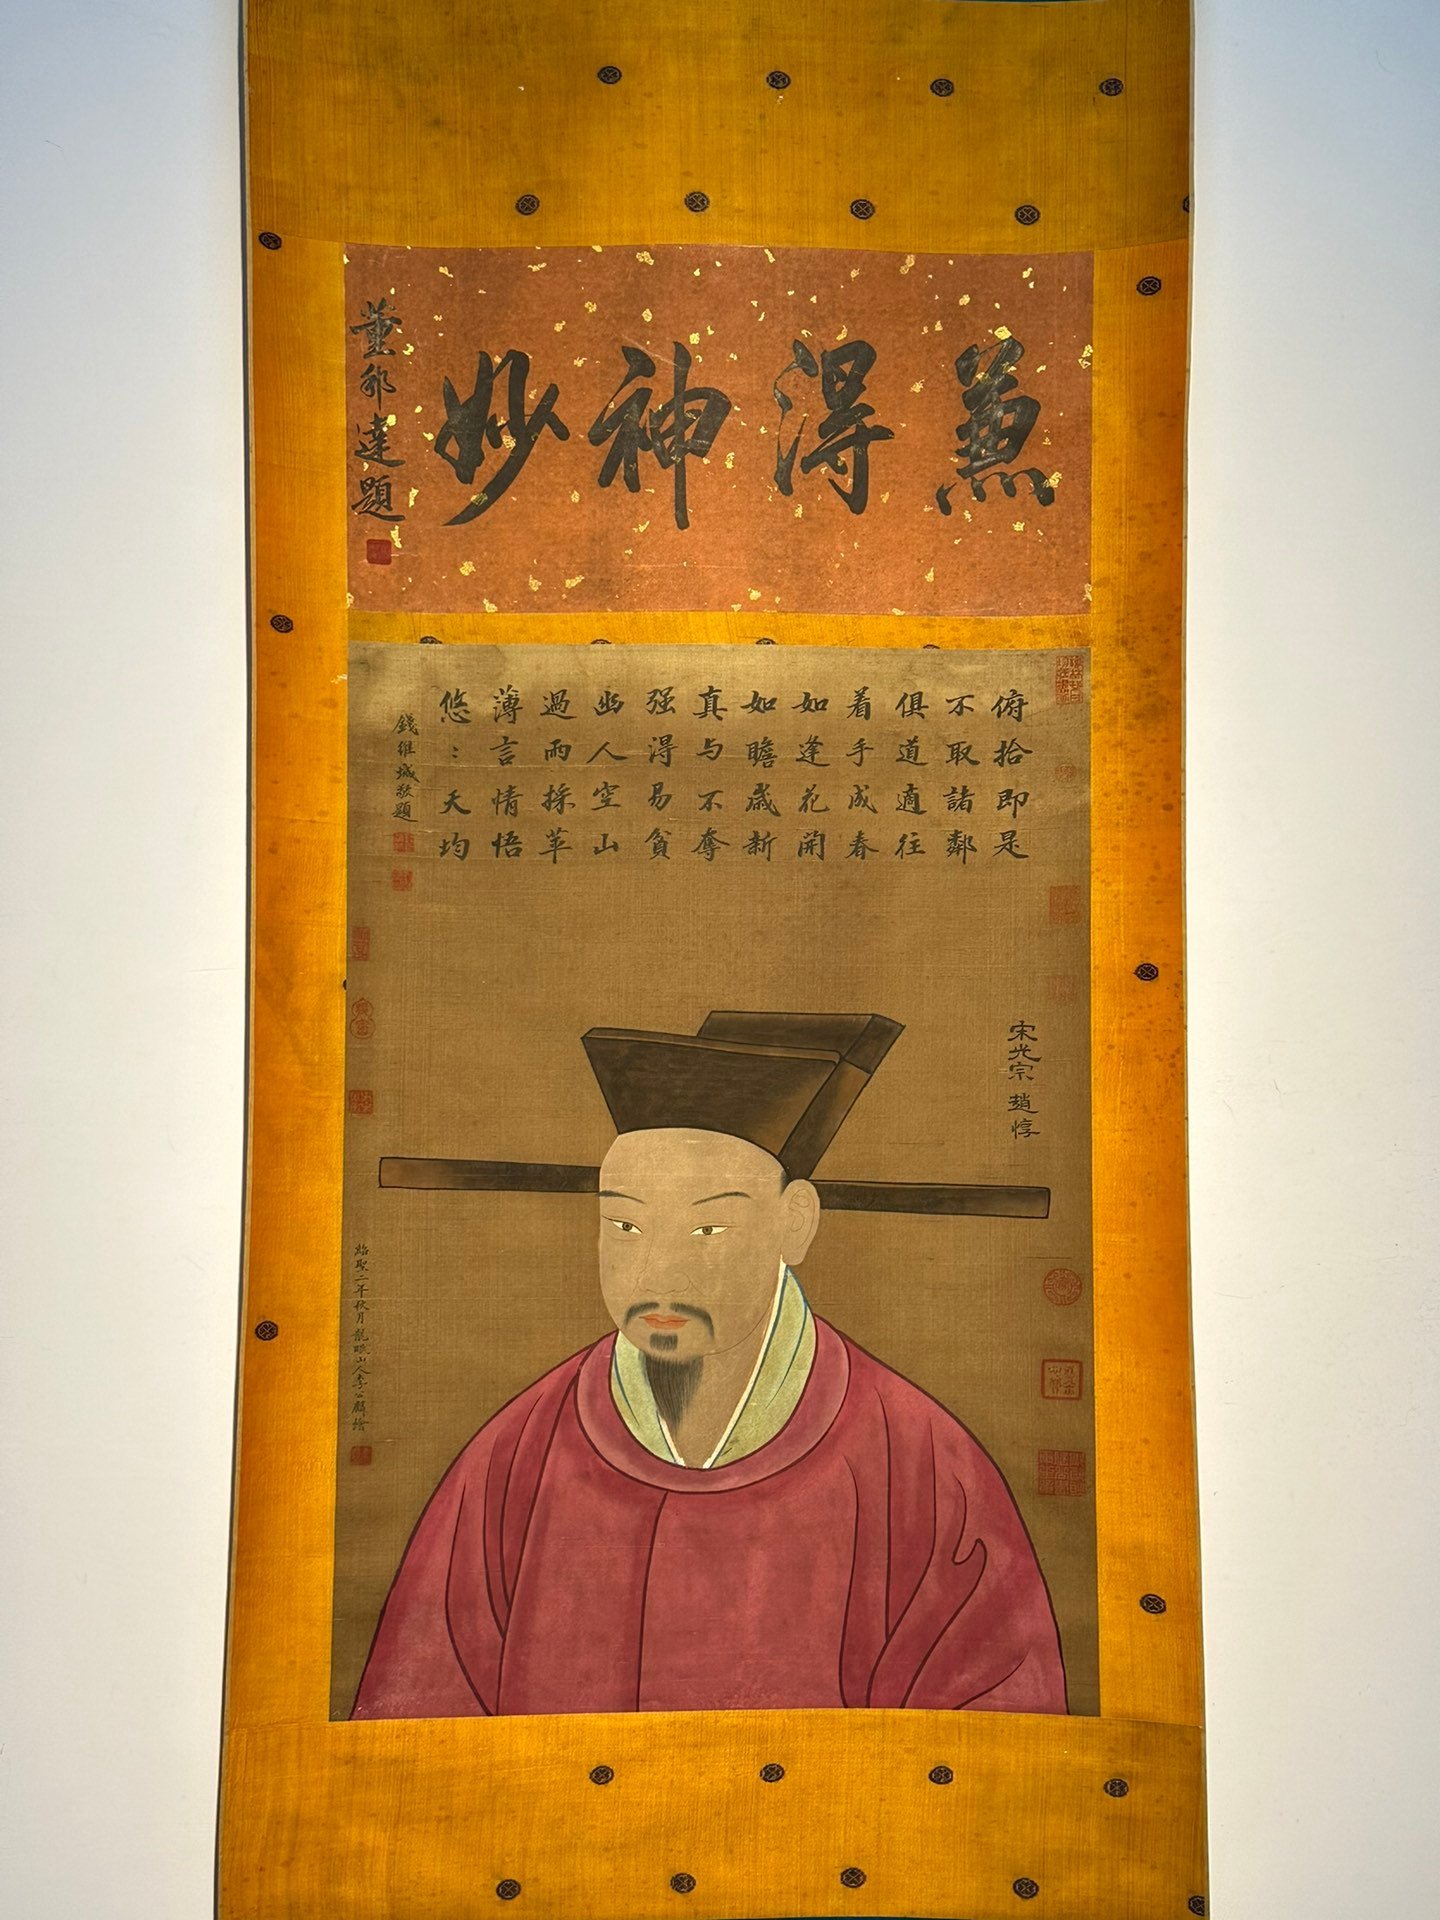 兼得神妙
董邦達題
俯拾即是
不取諸鄰
俱道適往
着手成春
如逢花開
如瞻歲新
真与不奪
强得易貧
幽人空山
過雨採苹
薄言情悟
悠〻天均
錢維城敬題
宋光宗 趙惇
紹聖二年秋月龍眠山人李公麟繪